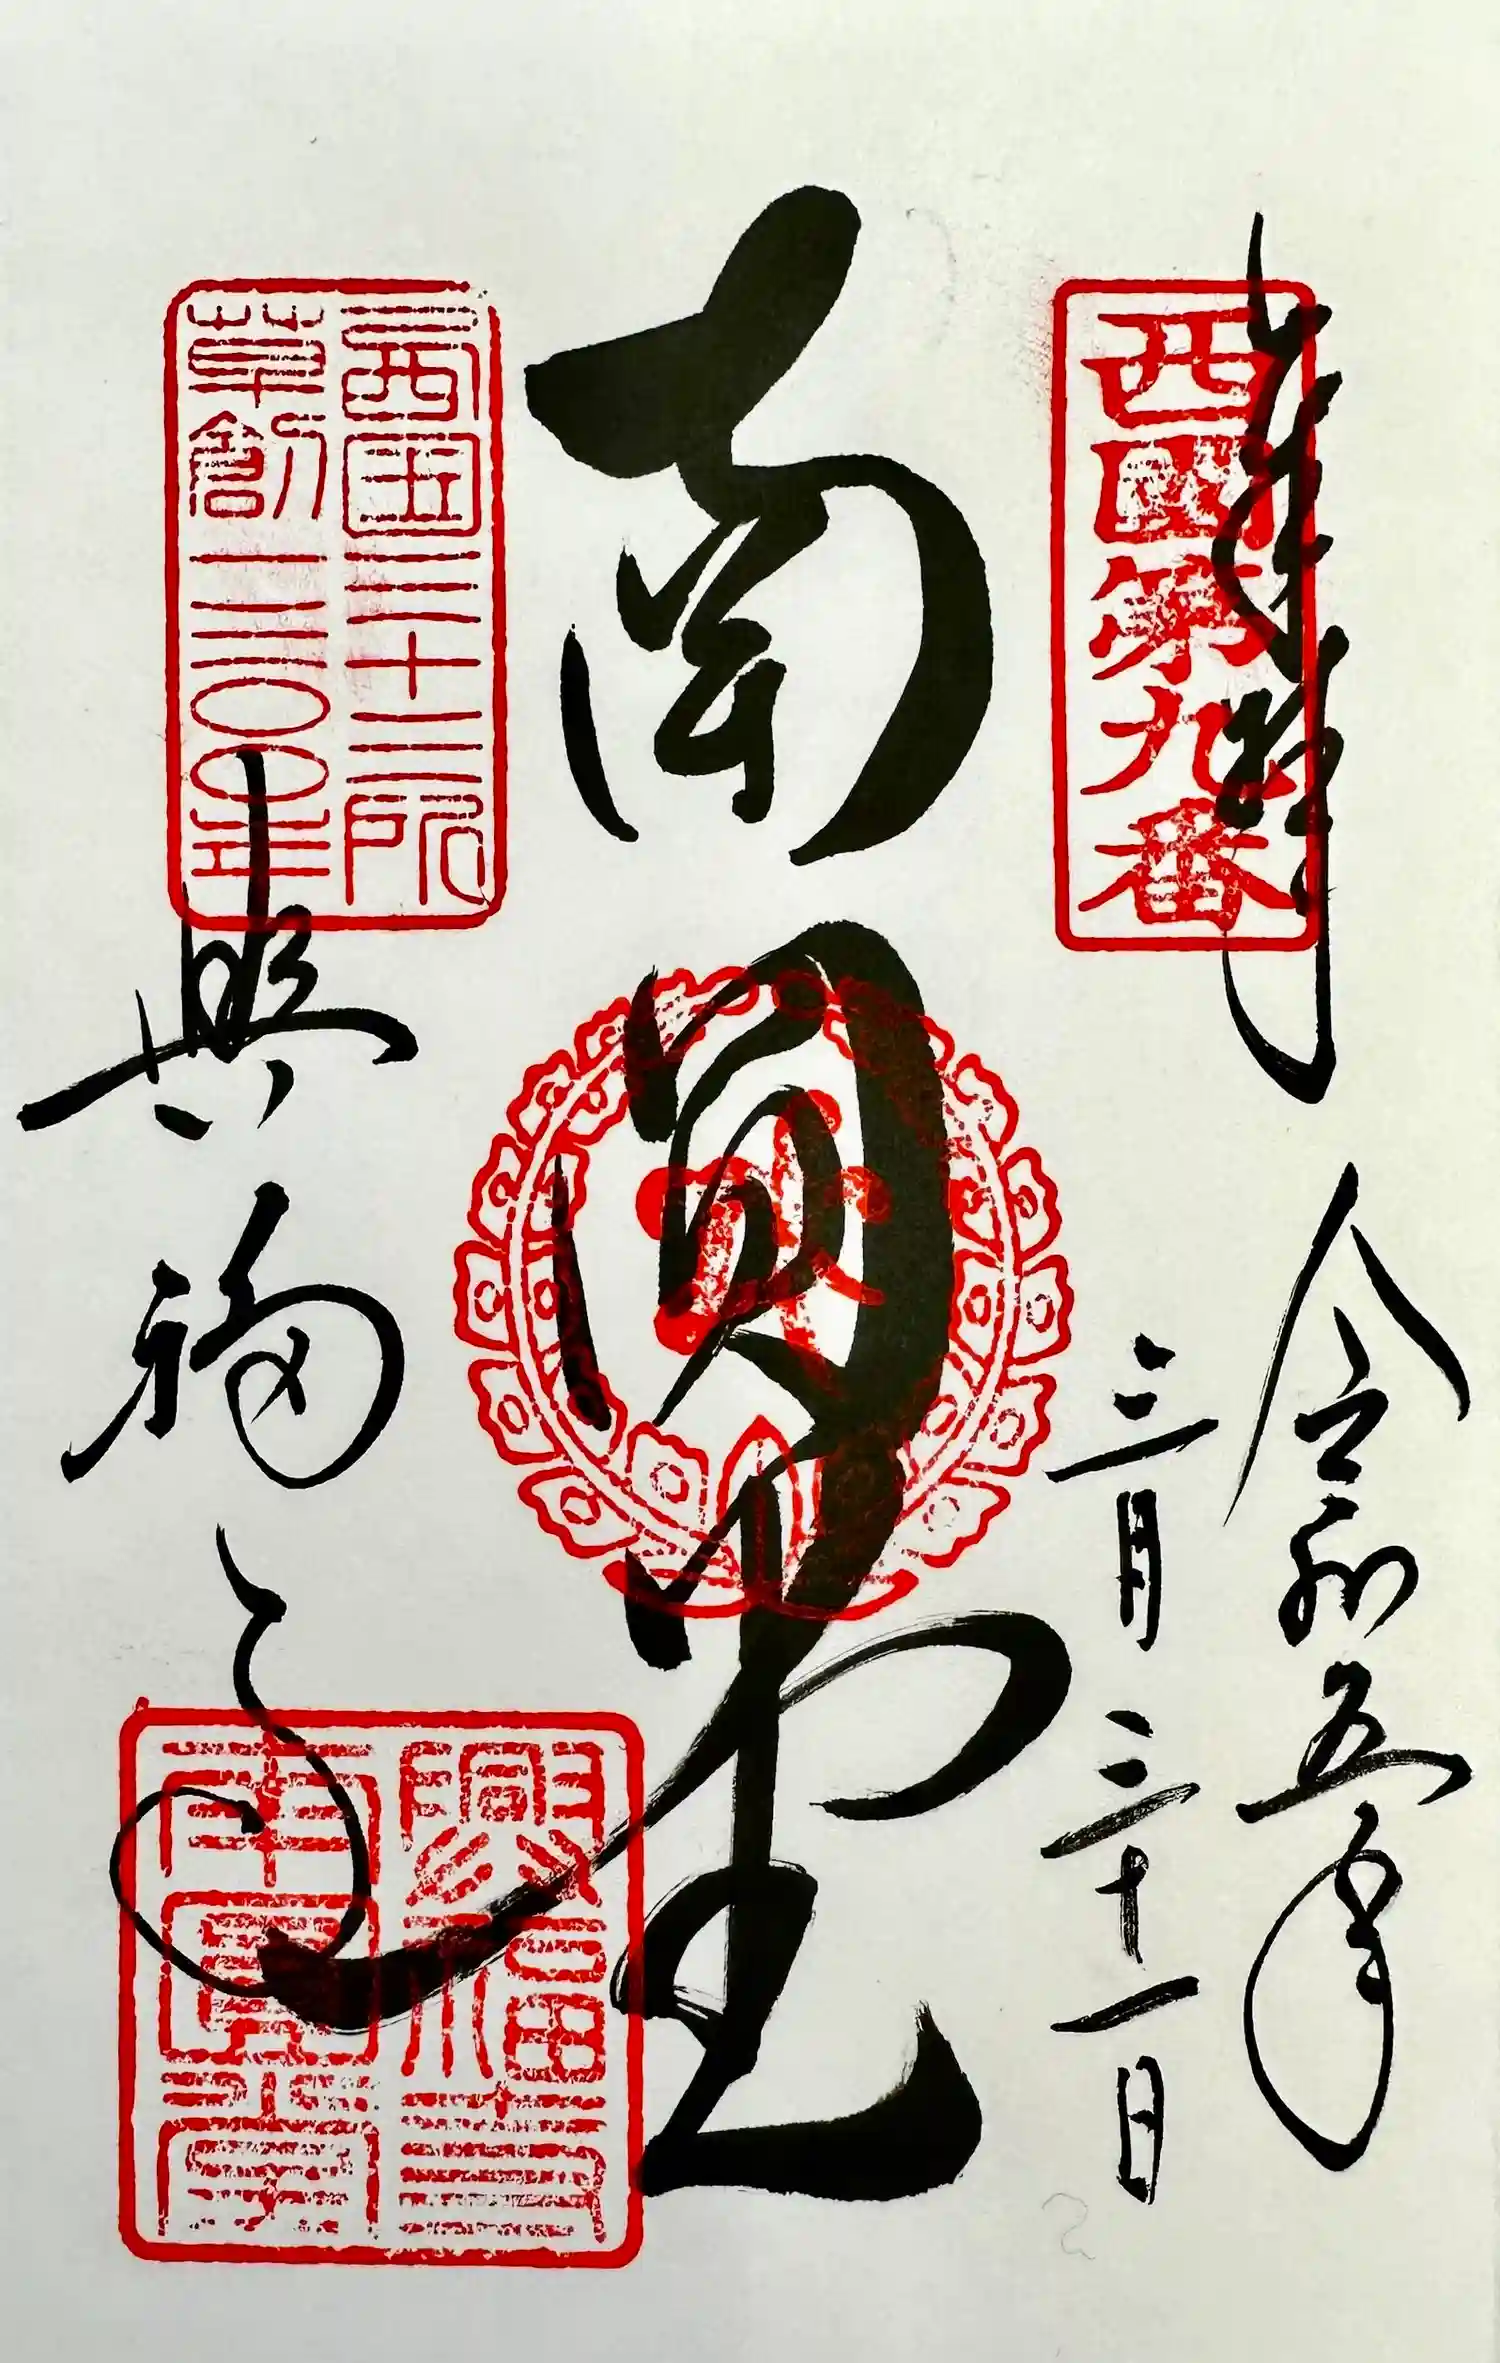 奉拝
西国第九番
令和五年
三月三十一日
南円堂
西国三十三所
草創一三〇〇年
興福寺
興福寺
南円堂